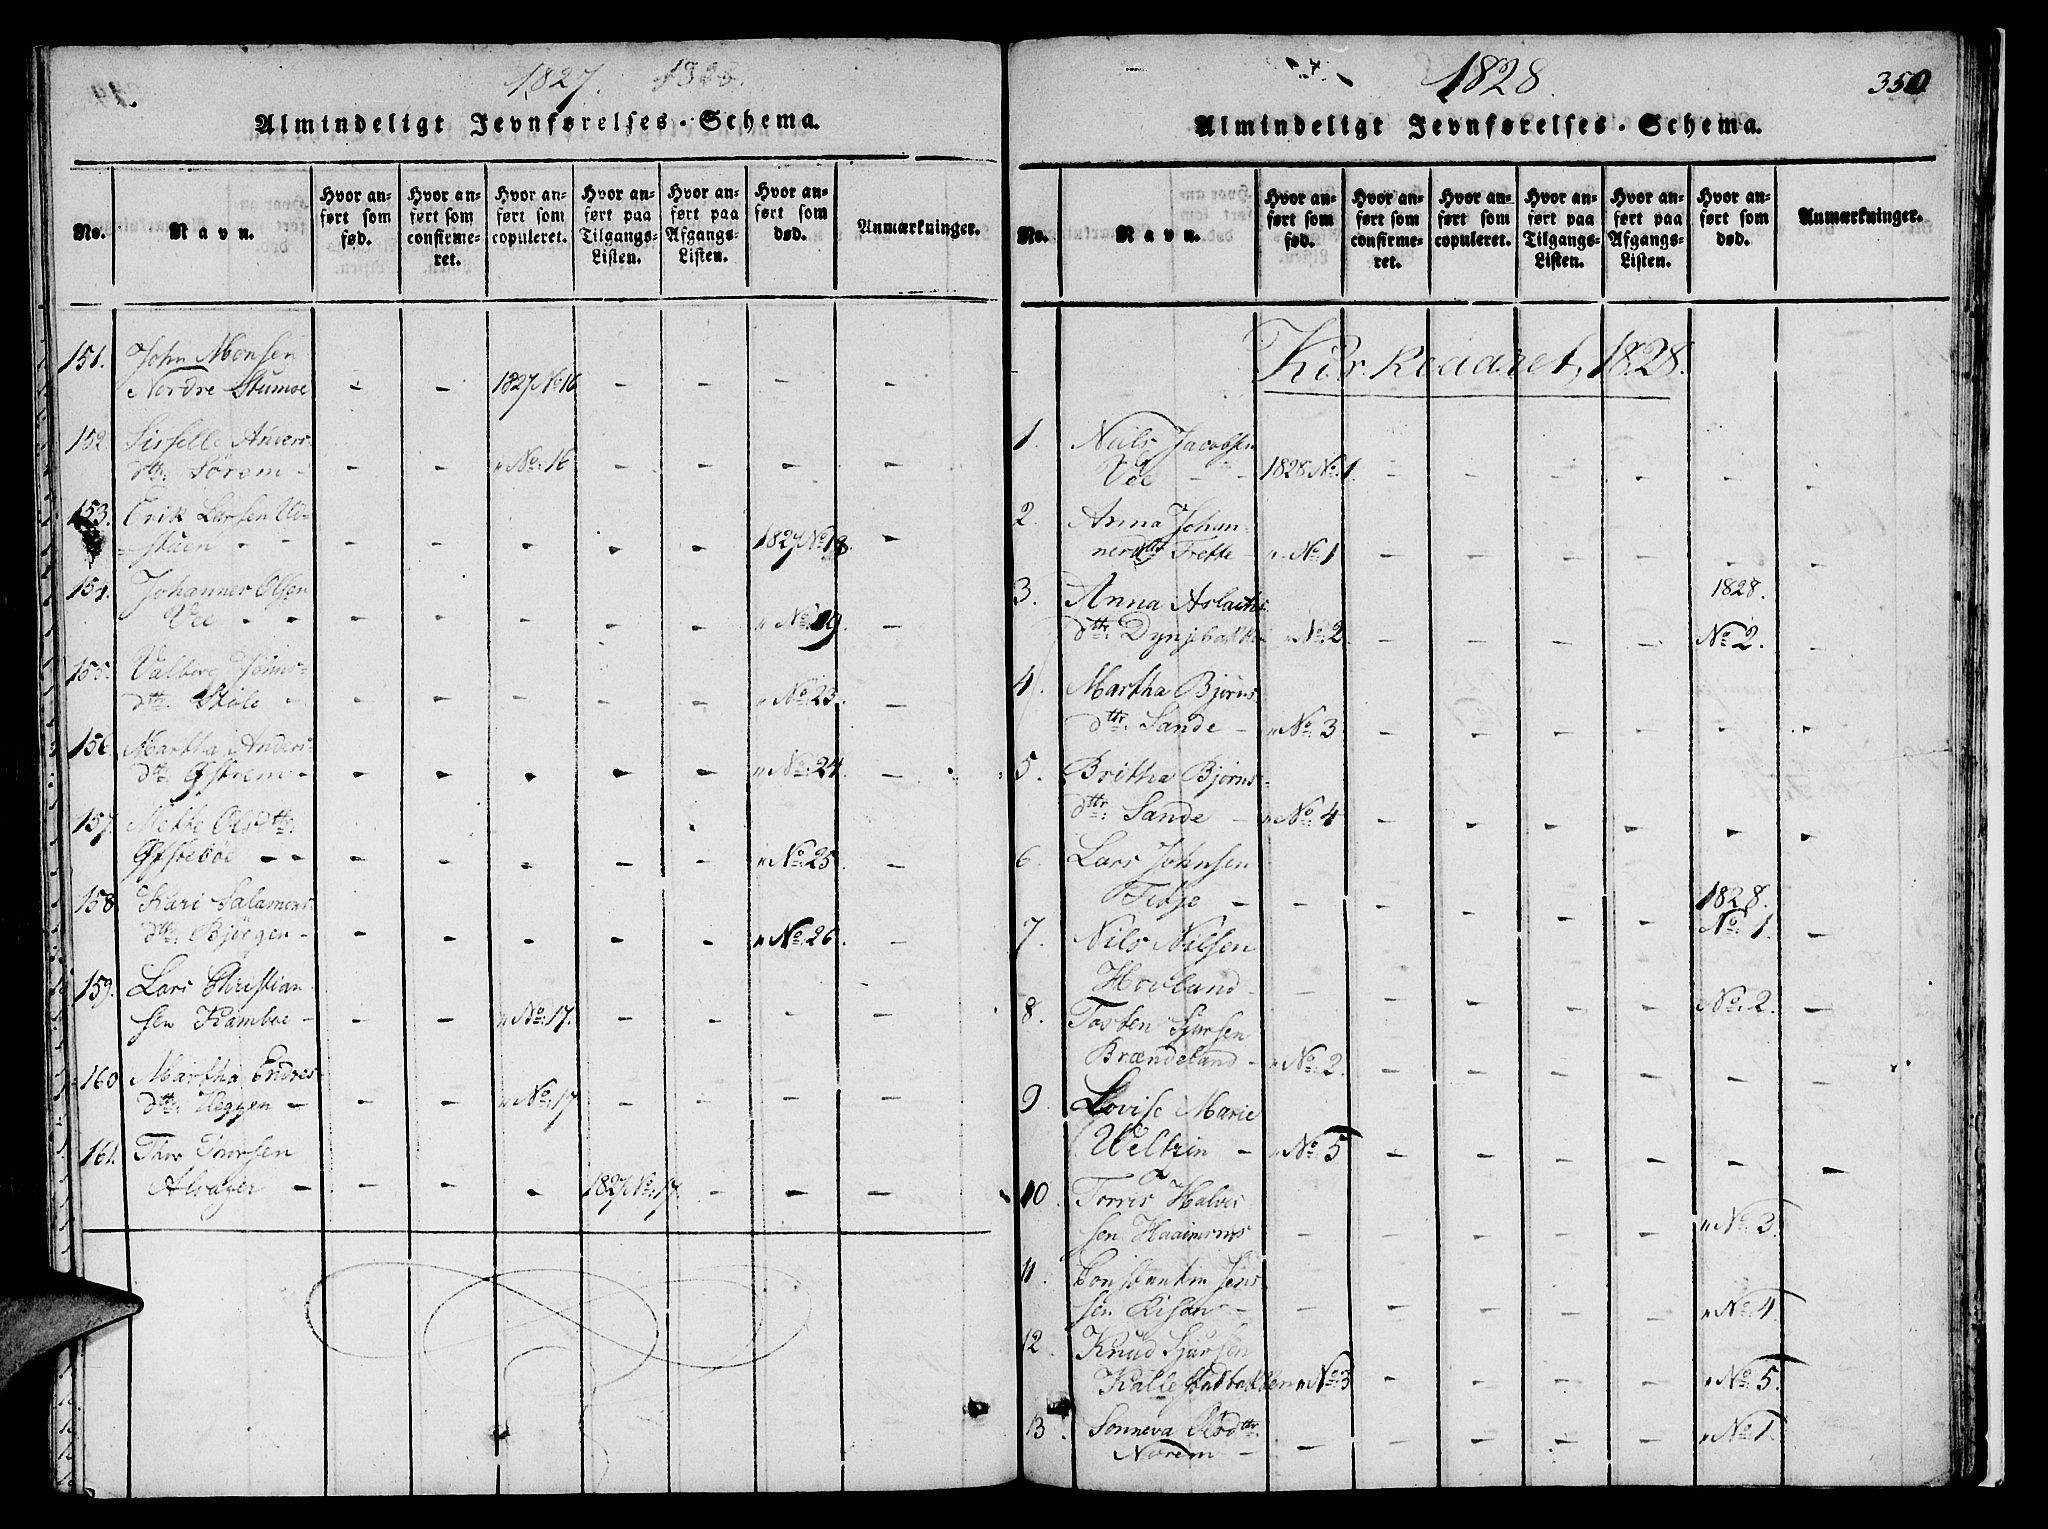 1827. 1828.
Almindeligt Jevnførelses-Schema.
No.
Navn.
Hvor an-
ført som
fød.
Hvor an-
ført som
confirme-
ret.
Hvor an-
ført som
copuleret.
Hvor an-
ført paa
Tilgangs-
Listen.
Hvor an-
ført paa
Afgangs-
Listen.
Hvor an-
ført som
død.
Anmærkninger.
151. John Monsen
Nordre Stumoe - - 1827 No 16 - - - -
152 Sisselle Anders
dtr. Sørem - - - " No. 16 - - - -
153. Erik Larsen Ud-
støen - - - - - - - 1827 No. 18. -
154. Johannes Olsen
Vee - - - - - - - " No. 19. -
155. Valberg Jons-
dtr. Skole - - - - - - " No. 23. -
156. Martha Anders-
dtr. Østrem - - - - - - " No. 24. -
157 Mette Olsdtr.
Øfstebøe - - - - - - - " No. 25. -
158 Kari Salamons
dtr. Bjørgen - - - - - - " No. 26. -
159. Lars Christian
sen Kamboe - - - " No. 17. - - - -
160 Martha Endres-
dtr. Heggen - - - " No. 17 - - - -
161. Thor Thorsen
Alvager - - - - 1827 No. 17. - - -
1828.
350
Almindeligt Jevnførelses-Schema.
No.
Navn.
Hvor an-
ført som
fød.
Hvor an-
ført som
confirme-
ret.
Hvor an-
ført som
copuleret.
Hvor an-
ført paa
Tilgangs-
Listen.
Hvor an-
ført paa
Afgangs-
Listen.
Hvor an-
ført som
død.
Anmærkninger.
Kirkeaaret, 1828.
1. Nils Jacobsen
Vee - - 1828 No. 1. - - - - - -
2. Anna Johan-
nesdtr Frette - " No. 1 - - - - - -
3. Anna Aslachs 1828.
dtr. " No. 2 - - - - No. 2. -
4. Martha Bjørns
dtr. Sande - " No. 3 - - - - - -
5. Britha Bjørns-
dtr. Sande - " No. 4 - - - - - -
6. Lars Johnsen
Tedje - - - - - - 1828.
No. 1. -
7. Nils Nilsen
Hovland - - - - - - No. 2. -
8. Tosten Sjursen
Brændeland - " No. 2. - - - - - -
9 Lovise Marie
Weltzin - " No. 5 - - - - - -
10. Torris Halvor
sen Haaimsnes - - - - - " No. 3. -
11. Constantin Jens
sen - - - - - - " No. 4. -
12. Knud Sjursen
Kallestadbakken " No. 3 - - - - " No. 5. -
13. Sonneva Olsdtr.
Norem - - - - - - " No. 1. -